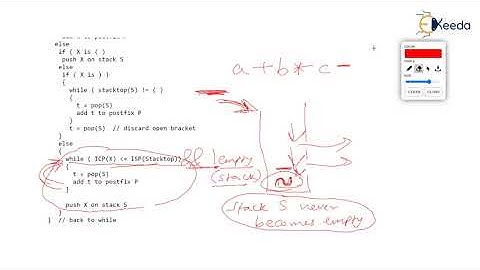 add X to postfix P
else
if ( X is ( )
push X on stack S
else
if ( X is ) )
{
while ( stacktop(S) != ( )
{
t = pop(S)
add t to postfix P
}
t = pop(S) // discard open bracket
}
else
{
while ( ICP(X) <= ISP(Stacktop))
{
t = pop(S)
add t to postfix P
}
push X on stack S
}
} // back to while
&& !empty
(stack)
a+b*c-
Stack S never
becomes empty
Keeda
CLEAR
CLOSE